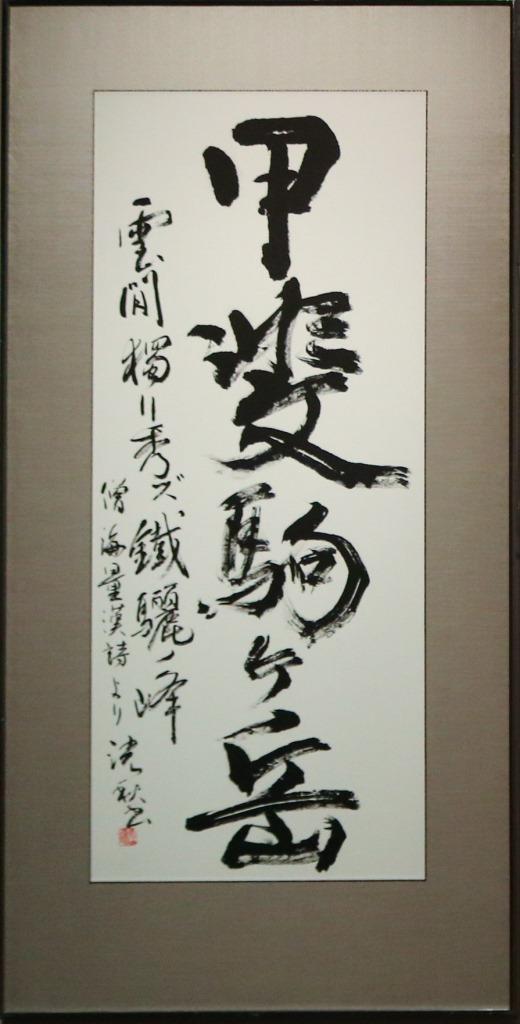 甲斐駒ヶ岳
雲間獨リ秀ズ鐵驪ノ峰
僧海量漢詩より